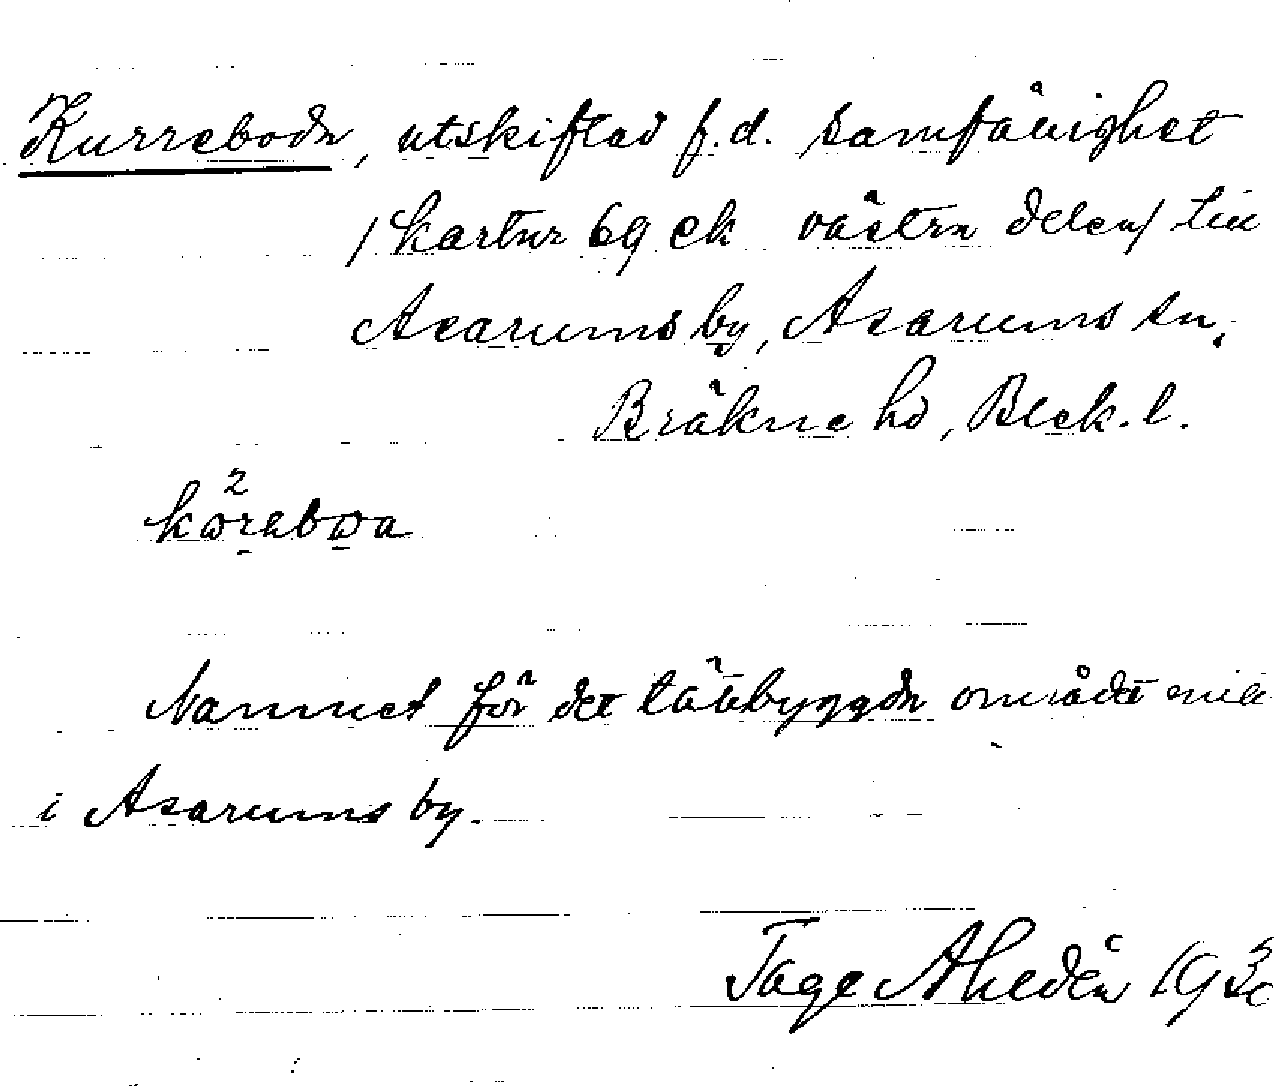 Kurreboda, utskiftad f.d. samfällighet
/kartnr 69 ek västra delen/ till
Asarums by, Asarums sn,
Bräkne hd, Blek. l.
2
Namnet för det tätbyggda området
i Asarums by.
Tage Ahldén 193